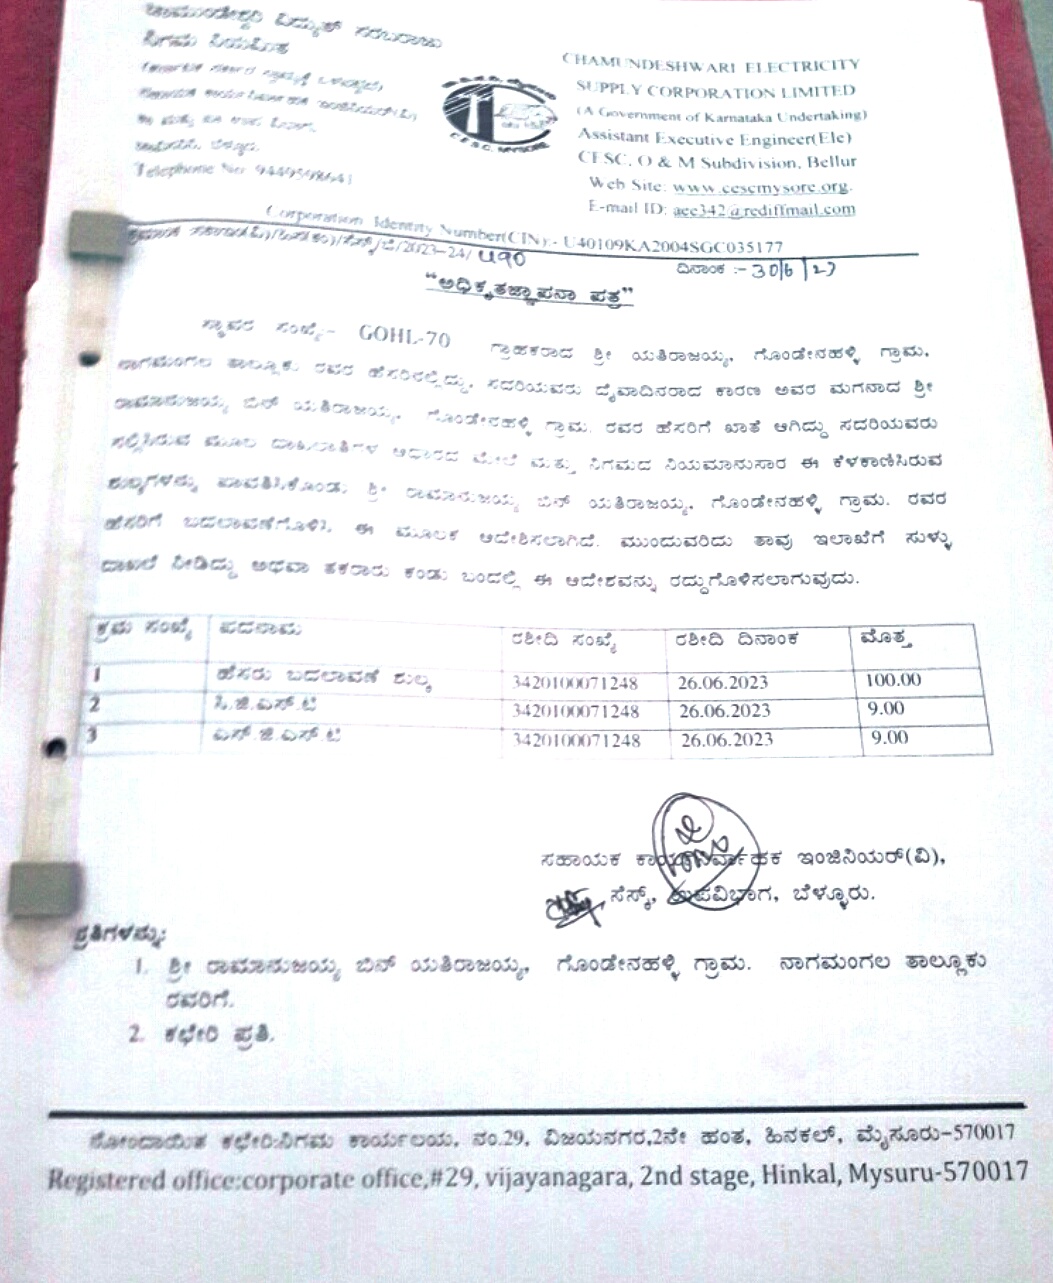 ಚಾಮುಂಡೇಶ್ವರಿ ವಿದ್ಯುತ್ ಸರಬರಾಜು
ನಿಗಮ ನಿಯಮಿತ
Telephone No: 9449598641
CHAMUNDESHWARI ELECTRICITY
SUPPLY CORPORATION LIMITED
(A Government of Karnataka Undertaking)
Assistant Executive Engineer(Ele)
CESC, O & M Subdivision, Bellur
Web Site: www.cescmysore.org.
E-mail ID: aee342@rediffmail.com
C.E.S.C. MYSORE
Corporation Identity Number(CIN):- U40109KA2004SGC035177
/2023-24/490
ದಿನಾಂಕ :- 30/6/23
"ಅಧಿಕೃತಜ್ಞಾಪನಾ ಪತ್ರ"
ಸ್ಥಾವರ ಸಂಖ್ಯೆ:- GOHL-70 ಗ್ರಾಹಕರಾದ ಶ್ರೀ ಯತಿರಾಜಯ್ಯ, ಗೊಂಡೇನಹಳ್ಳಿ ಗ್ರಾಮ,
ನಾಗಮಂಗಲ ತಾಲ್ಲೂಕು ರವರ ಹೆಸರಿನಲ್ಲಿದ್ದು, ಸದರಿಯವರು ದೈವಾದಿನರಾದ ಕಾರಣ ಅವರ ಮಗನಾದ ಶ್ರೀ
ರಾಮಾನುಜಯ್ಯ ಬಿನ್ ಯತಿರಾಜಯ್ಯ, ಗೊಂಡೇನಹಳ್ಳಿ ಗ್ರಾಮ. ರವರ ಹೆಸರಿಗೆ ಖಾತೆ ಆಗಿದ್ದು ಸದರಿಯವರು
ಸಲ್ಲಿಸಿರುವ ಮೂಲ ದಾಖಲಾತಿಗಳ ಆಧಾರದ ಮೇಲೆ ಮತ್ತು ನಿಗಮದ ನಿಯಮಾನುಸಾರ ಈ ಕೆಳಕಾಣಿಸಿರುವ
ಶುಲ್ಕಗಳನ್ನು ಪಾವತಿಸಿಕೊಂಡು, ಶ್ರೀ ರಾಮಾನುಜಯ್ಯ ಬಿನ್ ಯತಿರಾಜಯ್ಯ, ಗೊಂಡೇನಹಳ್ಳಿ ಗ್ರಾಮ. ರವರ
ಹೆಸರಿಗೆ ಬದಲಾವಣೆಗೊಳಿಸಿ, ಈ ಮೂಲಕ ಆದೇಶಿಸಲಾಗಿದೆ. ಮುಂದುವರಿದು ತಾವು ಇಲಾಖೆಗೆ ಸುಳ್ಳು
ದಾಖಲೆ ನೀಡಿದ್ದು ಅಥವಾ ತಕರಾರು ಕಂಡು ಬಂದಲ್ಲಿ ಈ ಆದೇಶವನ್ನು ರದ್ದುಗೊಳಿಸಲಾಗುವುದು.
ಕ್ರಮ ಸಂಖ್ಯೆ ಪದನಾಮ ರಶೀದಿ ಸಂಖ್ಯೆ ರಶೀದಿ ದಿನಾಂಕ ಮೊತ್ತ
1 ಹೆಸರು ಬದಲಾವಣೆ ಶುಲ್ಕ 3420100071248 26.06.2023 100.00
2 ಸಿ.ಜಿ.ಎಸ್.ಟಿ 3420100071248 26.06.2023 9.00
3 ಎಸ್.ಜಿ.ಎಸ್.ಟಿ 3420100071248 26.06.2023 9.00
ಸಹಾಯಕ ಕಾರ್ಯನಿರ್ವಾಹಕ ಇಂಜಿನಿಯರ್(ವಿ),
ಸೆಸ್ಕ್, ಉಪವಿಭಾಗ, ಬೆಳ್ಳೂರು.
ಪ್ರತಿಗಳನ್ನು:
1. ಶ್ರೀ ರಾಮಾನುಜಯ್ಯ ಬಿನ್ ಯತಿರಾಜಯ್ಯ, ಗೊಂಡೇನಹಳ್ಳಿ ಗ್ರಾಮ. ನಾಗಮಂಗಲ ತಾಲ್ಲೂಕು
ರವರಿಗೆ.
2. ಕಛೇರಿ ಪ್ರತಿ.
ನೋಂದಾಯಿತ ಕಛೇರಿ:ನಿಗಮ ಕಾರ್ಯಲಯ, ನಂ.29, ವಿಜಯನಗರ,2ನೇ ಹಂತ, ಹಿನಕಲ್, ಮೈಸೂರು-570017
Registered office:corporate office,#29, vijayanagara, 2nd stage, Hinkal, Mysuru-570017